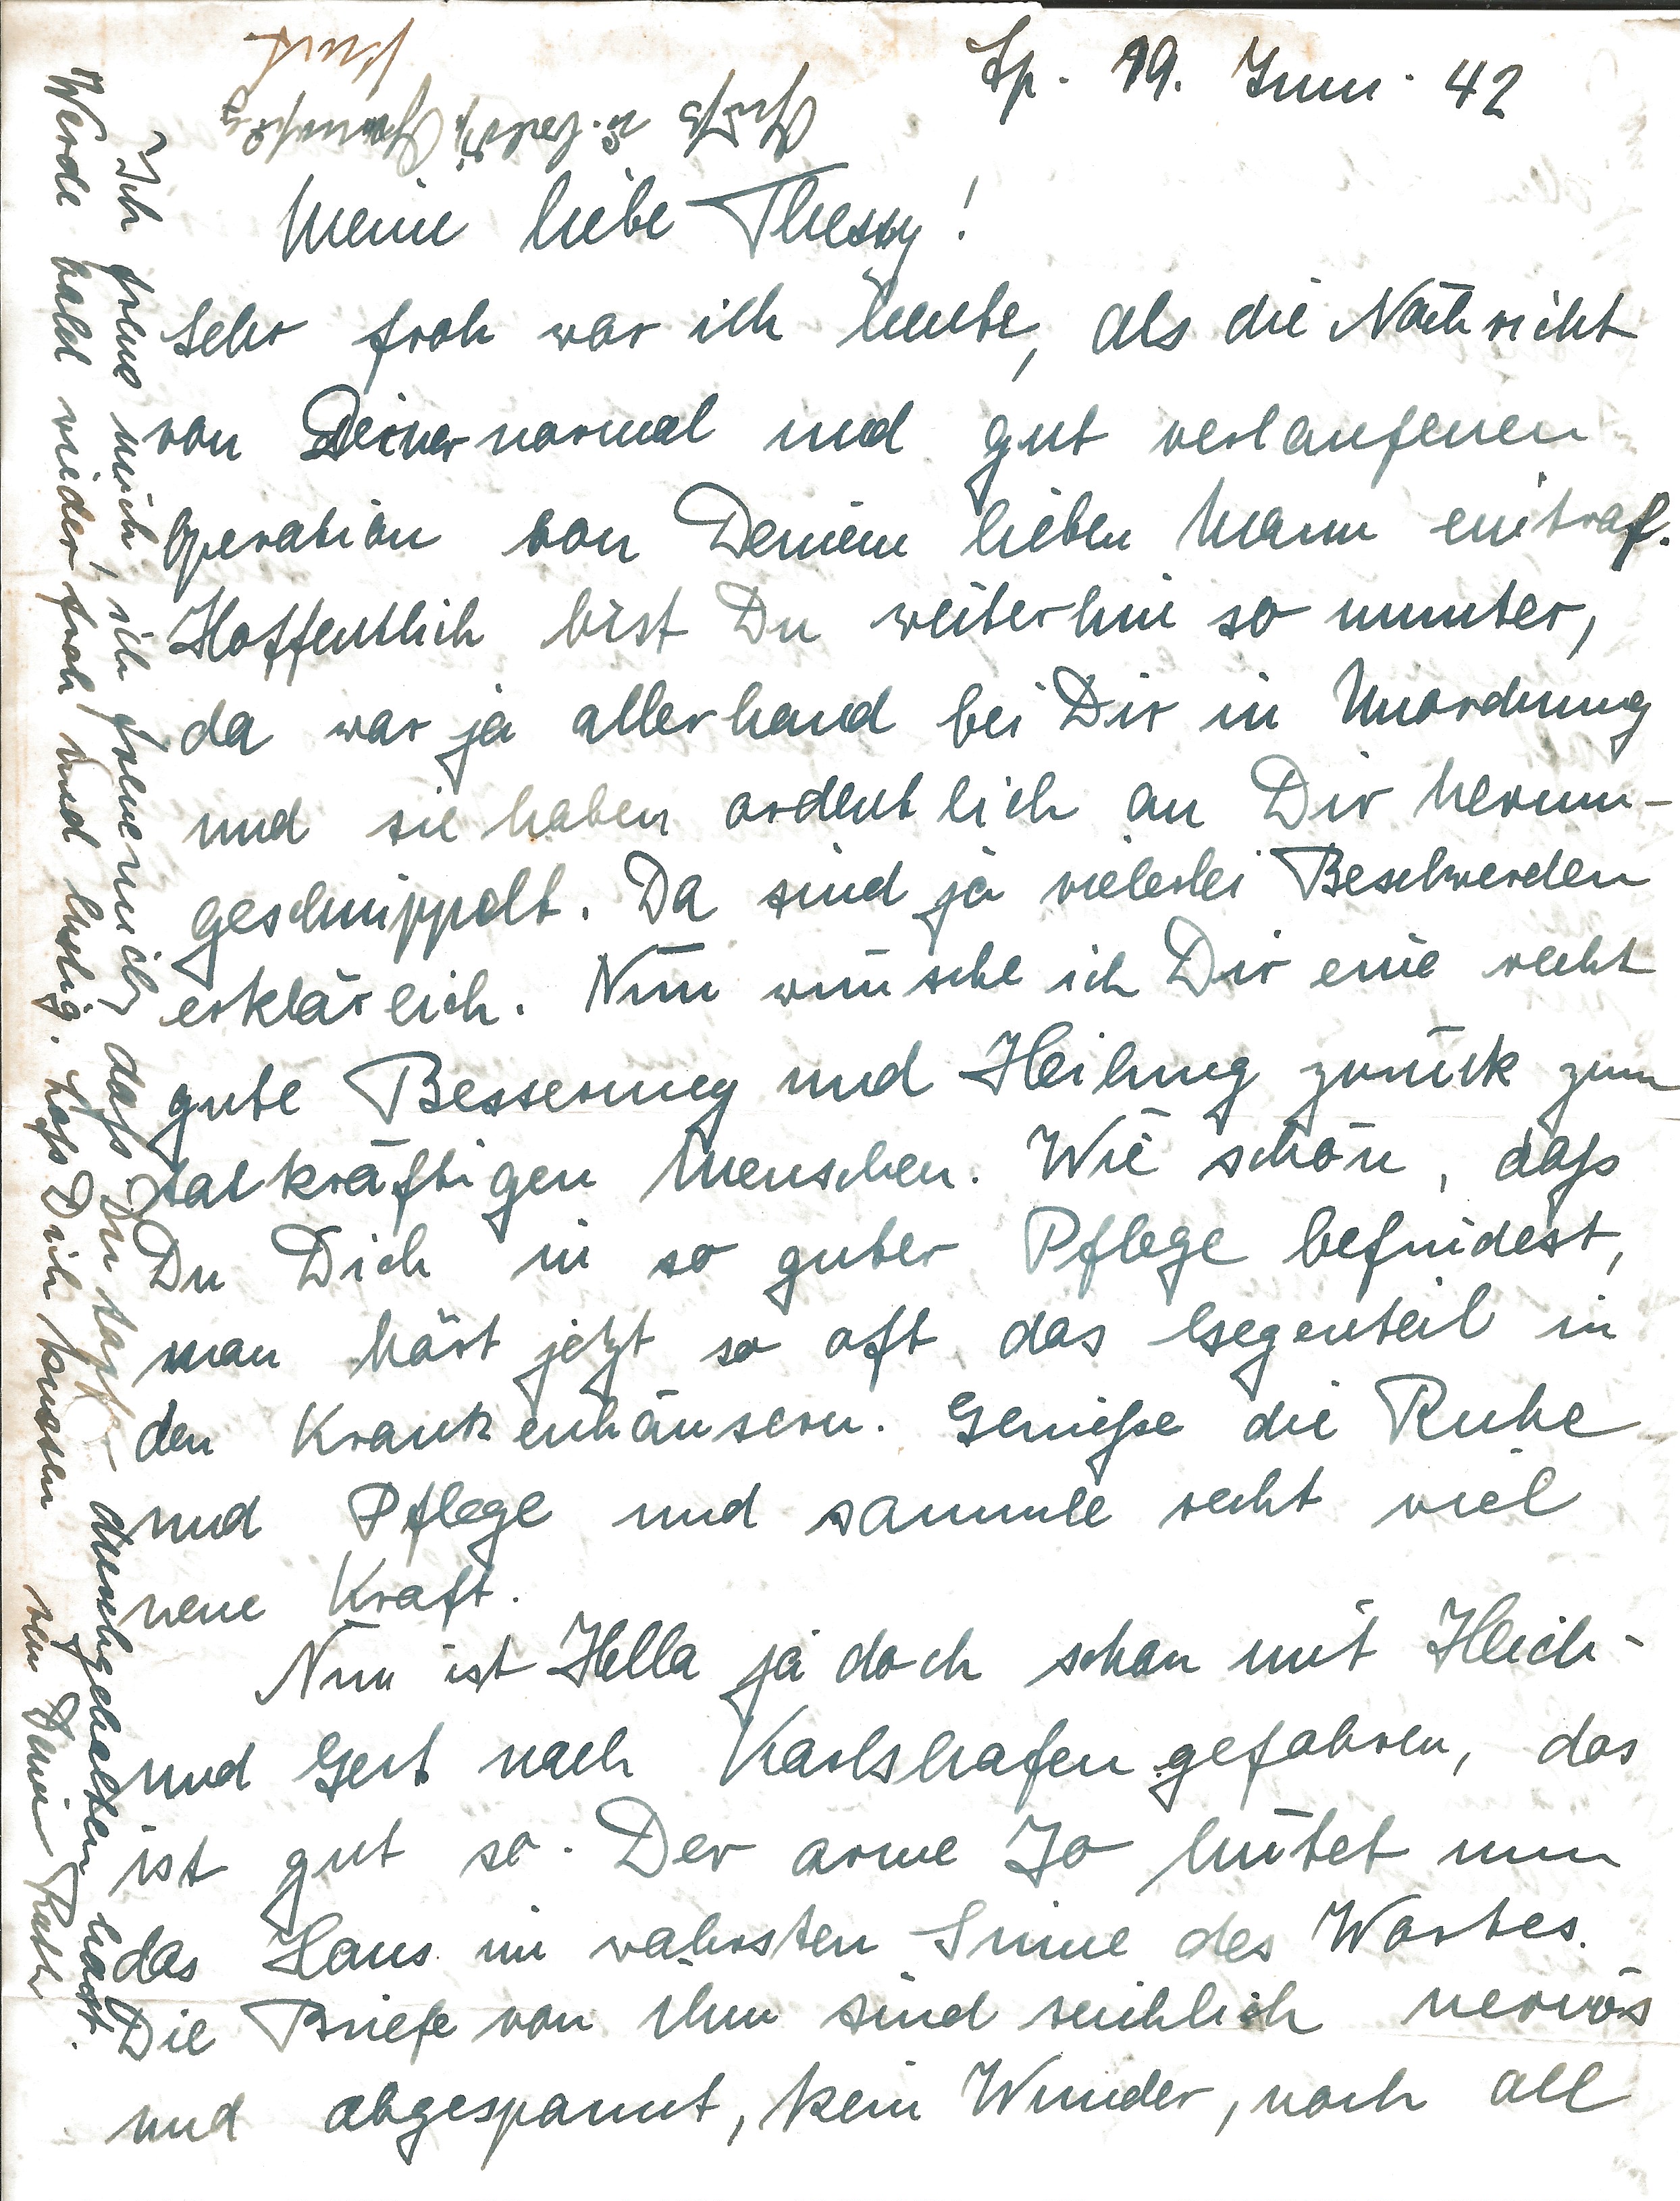 Sp. 19. Juni. 42
Meine liebe Thessy!
Sehr froh war ich heute, als die Nachricht
von Deiner normal und gut verlaufenen
Operation von Deinem lieben Mann eintraf.
Hoffentlich bist Du weiterhin so munter,
da war ja allerhand bei Dir in Unordnung
und sie haben ordentlich an Dir herum-
geschnippelt. Da sind ja vielerlei Beschwerden
erklärlich. Nun wünsche ich Dir eine recht
gute Besserung und Heilung zurück zum
tatkräftigen Menschen. Wie schön, dass
Du Dich in so guter Pflege befindest,
man hört jetzt so oft das Gegenteil in
den Krankenhäusern. Genieße die Ruhe
und Pflege und sammle recht viel
neue Kraft.
Nun ist Hella ja doch schon mit Heidi
und Gert nach Karlshafen gefahren, das
ist gut so. Der arme Jo hütet nun
das Haus im wahrsten Sinne des Wortes.
Die Briefe von ihm sind reichlich nervös
und abgespannt, kein Wunder, nach all
Ich freue mich, ich freue mich, dass Du tapfer durchgehalten hast.
Werde bald wieder froh und lustig. Lass Dich küssen von Deiner